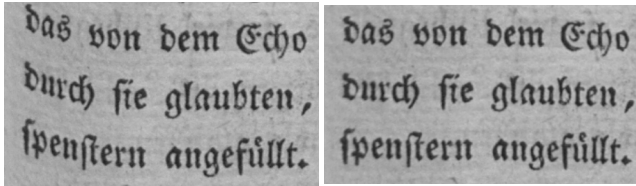 das von dem Echo
durch ſie glaubten,
ſpenſtern angefüllt.
das von dem Echo
durch ſie glaubten,
ſpenſtern angefüllt.